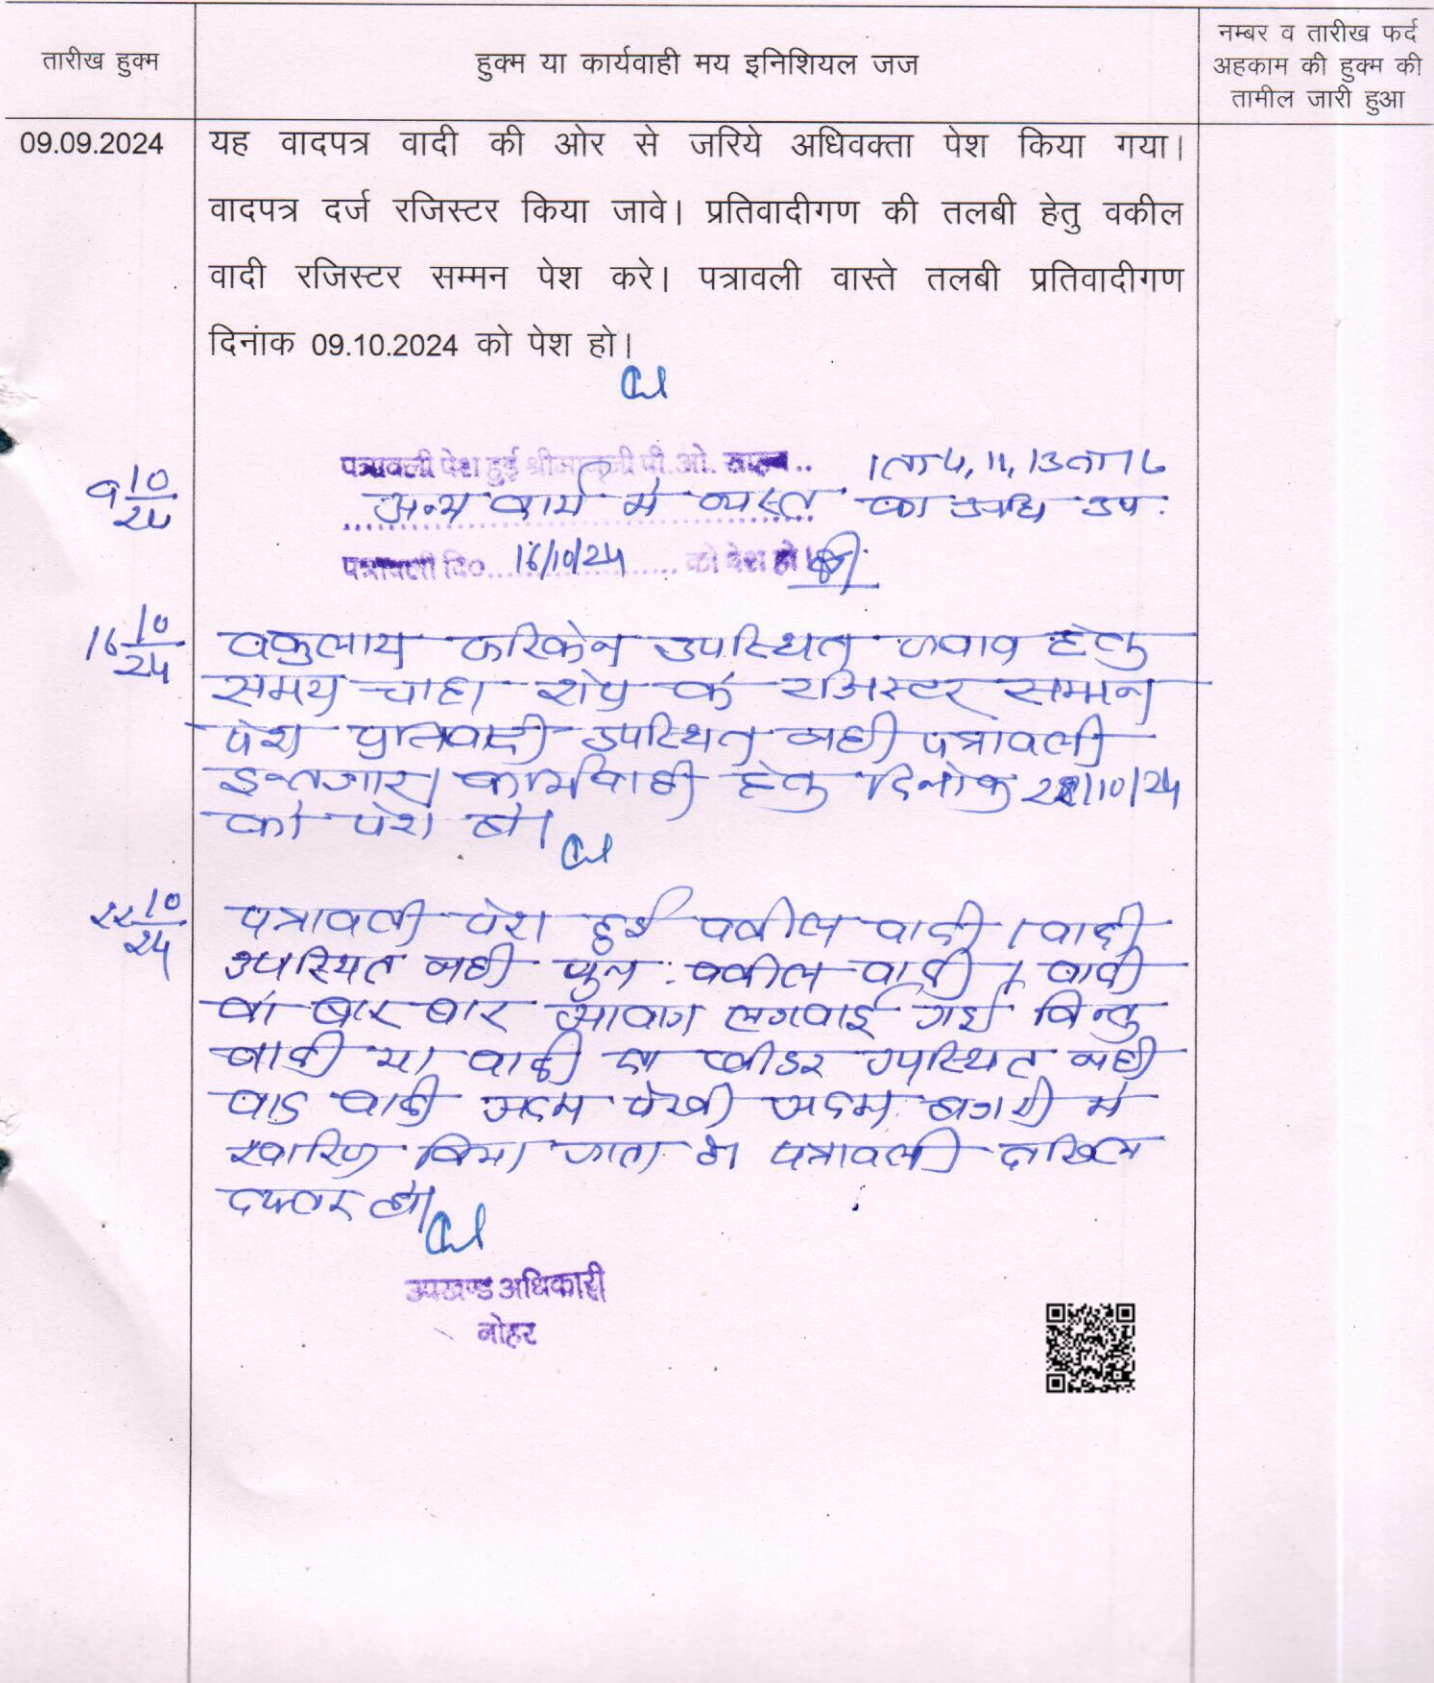 तारीख हुक्म
हुक्म या कार्यवाही मय इनिशियल जज
नम्बर व तारीख फर्द
अहकाम की हुक्म की
तामील जारी हुआ
09.09.2024
यह वादपत्र वादी की ओर से जरिये अधिवक्ता पेश किया गया।
वादपत्र दर्ज रजिस्टर किया जावे। प्रतिवादीगण की तलबी हेतु वकील
वादी रजिस्टर सम्मन पेश करे। पत्रावली वास्ते तलबी प्रतिवादीगण
दिनांक 09.10.2024 को पेश हो।
9 10/24
पत्रावली पेश हुई श्रीमानजी पी.ओ. साहब.. 1 ता 4, 11, 13 ता 16
अन्य कार्य मे व्यस्त का अधि उप.
पत्रावली दि० 16/10/24 को पेश हो।
16 10/24
वकुलाय फरिकेन उपस्थित जवाब हेतु
समय चाहा शेष के रजिस्टर सम्मन
पेश प्रतिवादी उपस्थित नही पत्रावली
इन्तजार कार्यवाही हेतु दिनांक 22/10/24
को पेश हो।
22 10/24
पत्रावली पेश हुई वकील वादी / वादी
उपस्थित नही पुन: वकील वादी / वादी
को बार बार आवाज लगवाई गई किन्तु
वादी या वादी का प्लीडर उपस्थित नही
वाद वादी अदम पेरवी अदम हाजरी मे
खारिज किया जाता है। पत्रावली दाखिल
दफ्तर हो।
उपखण्ड अधिकारी
नोहर